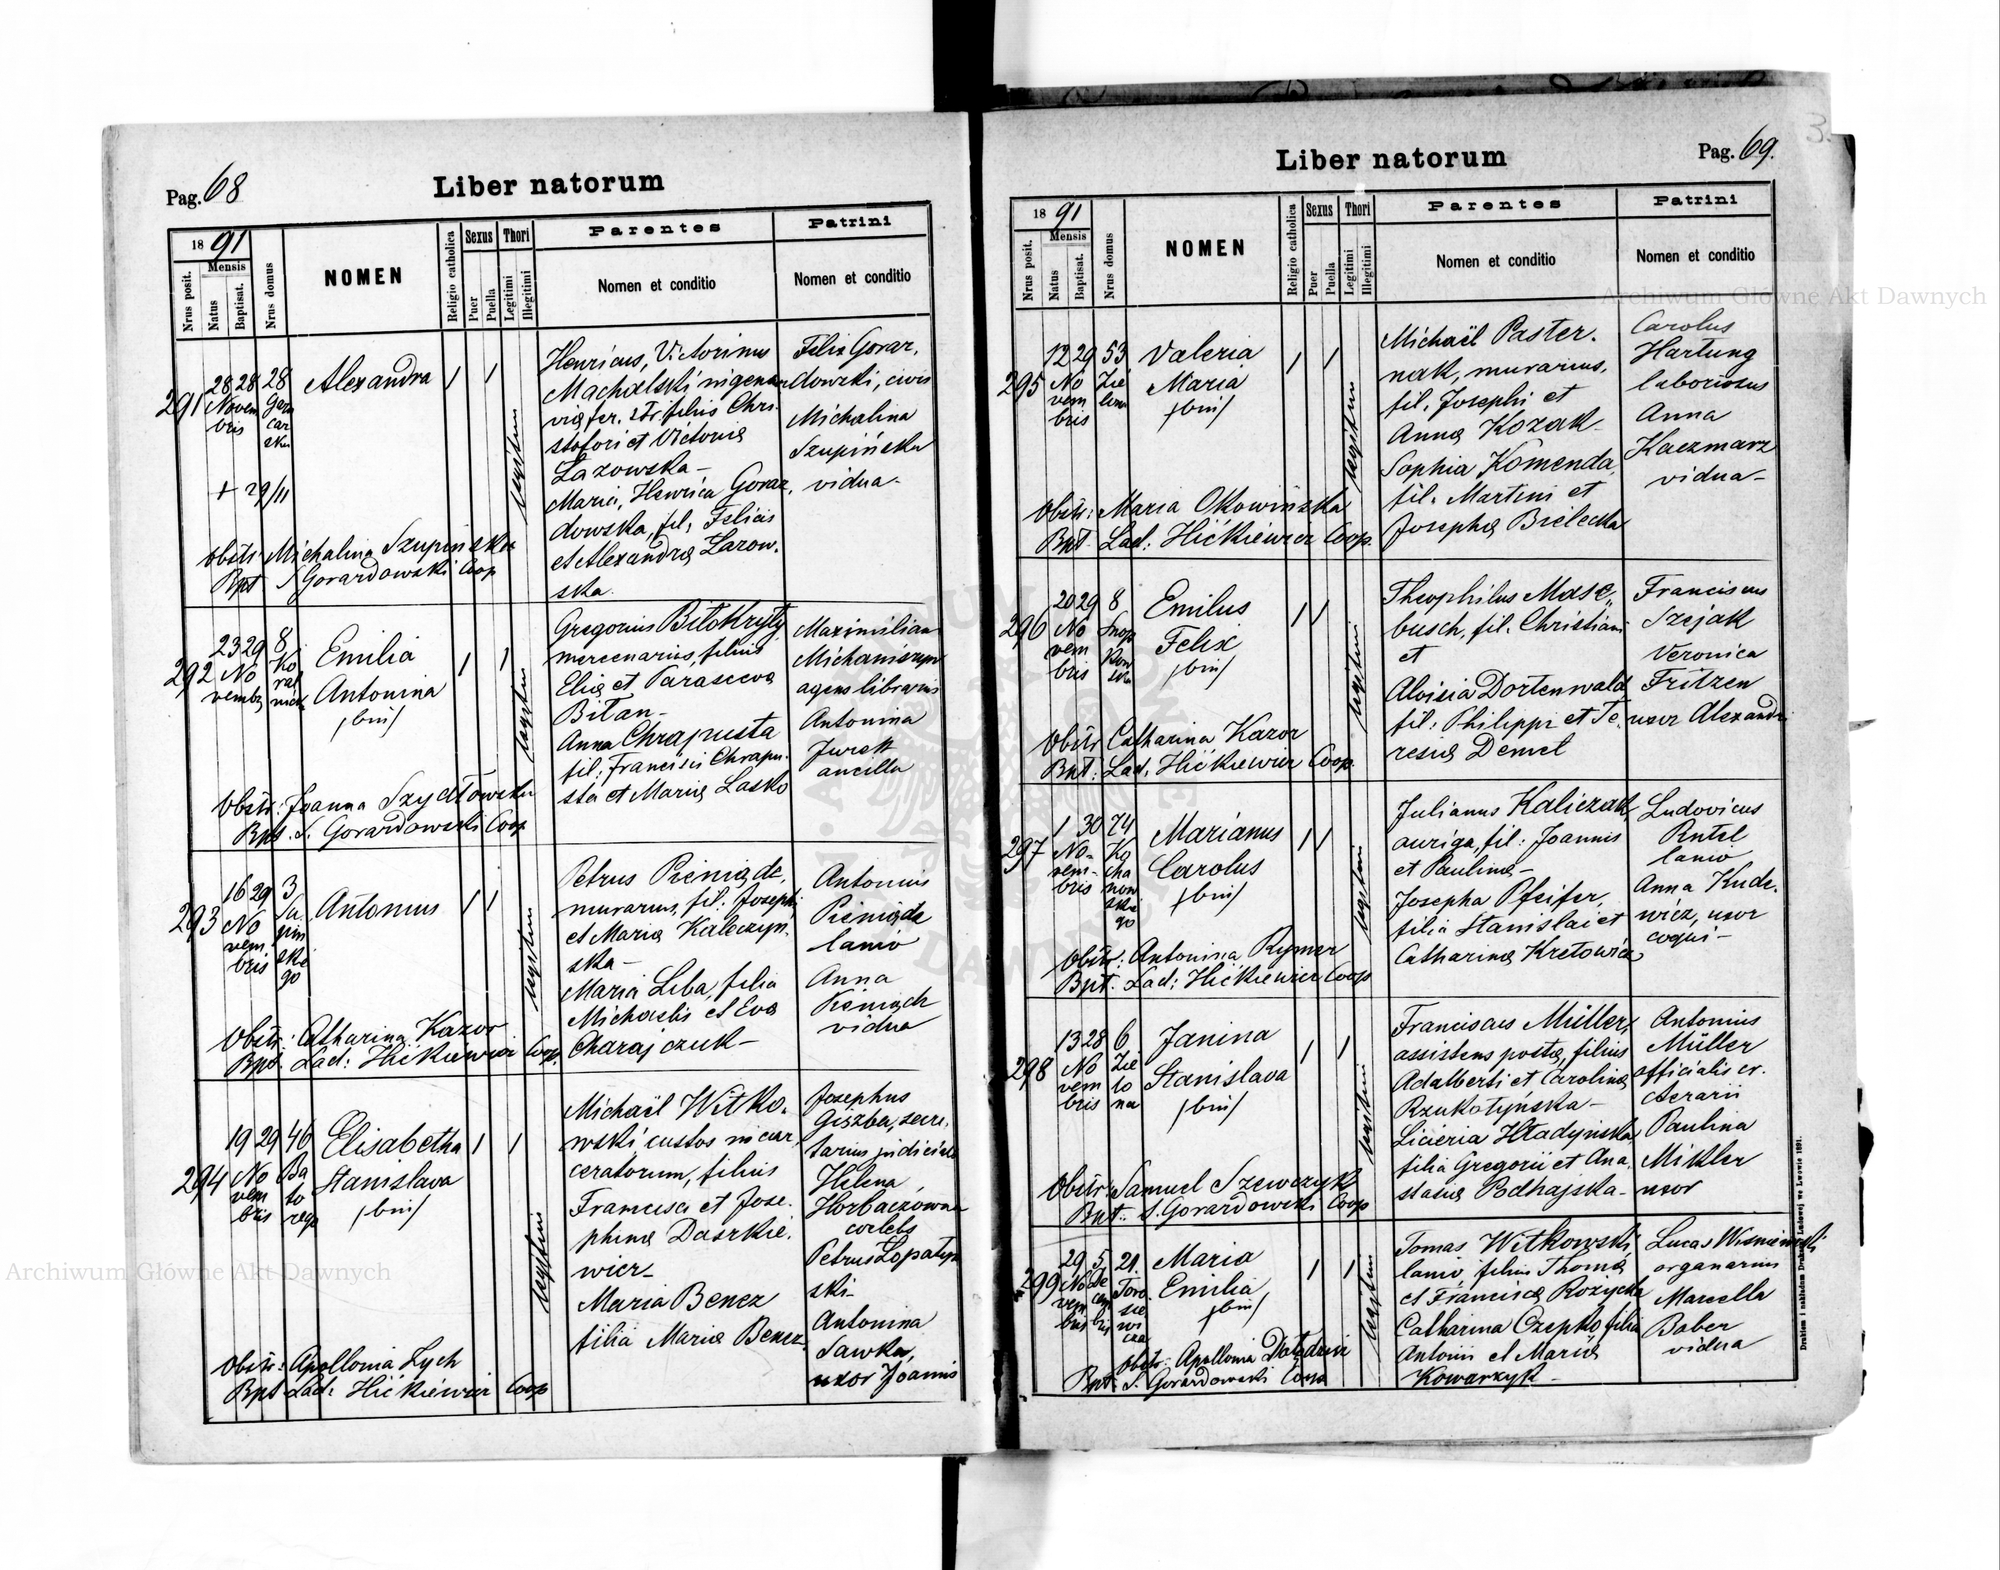 Pag. 68
Liber natorum
18 91
Nrus posit.
Mensis
Natus
Baptisat.
Nrus domus
NOMEN
Religio catholica
Sexus
Puer
Puella
Thori
Legitimi
Illegitimi
Parentes
Nomen et conditio
Patrini
Nomen et conditio
291
28 28 28
Novem
bris
Alexandra
+ 29/11
Henricus, Victorinus
Machalski
fer. filius Chri-
stofori et Victoria
Lazowska-
Maria, Henrica Goraz.
dowska, fil. Felicis
et Alexandra Lazow.
ska.
Felix Goraz.
dowski, civis
Michalina
Szupińska
vidua-
obstr. Michalina Szupińska
Bpt S Gorazdowski Coop
292
23 29 8
No
vembr
Emilia
Antonina
/bin/
Gregorius Bitokryty
mercenarius, filius
Elia et Parasceva
Bitan-
Anna Chrapusta
fil: Francisci Chrapu-
sta et Maria Lasko
Maximilian
agens librarius
Antonina
Jurek
ancilla
Obstr: Joanna Szydłowska
Bpt. S. Gorazdowski Coop
293
16 29 3
No
vem
bris
Antonius
Petrus Pieniądz,
murarius, fil: Josephi
et Maria Kaleczyń.
ska-
Maria Liba, filia
Michaelis et Eva
Charajczuk-
Antonius
Pieniądz
lanio
Anna
Pieniądz
vidua
Obstr: Catharina Kazor
Bpt. Lad: Hićkiewicz Coop
294
19 29 46
No
vem
bris
Ba
to
rego
Elisabetha
Stanislava
/bin/
Michaël Witko.
wski custos incar.
ceratorum, filius
Francisci et Jose.
phina Daszkie.
wicz-
Maria Bencz
filia Maria Bencz
Josephus
Giszba, secre.
tarius judicialis
Helena
Horbaczówna
coelebs
Petrus Lopatyń
ski-
Antonina
Sawka,
uxor Joannis
Obstr: Apollonia Lych
Bpt Lad: Hićkiewicz Coop
Liber natorum
Pag. 69.
18 91
Nrus posit.
Mensis
Natus
Baptisat.
Nrus domus
NOMEN
Religio catholica
Sexus
Puer
Puella
Thori
Legitimi
Illegitimi
Parentes
Nomen et conditio
Patrini
Nomen et conditio
295
12 29 53
No
vem
bris
Valeria
Maria
/bin/
Michaël Paster.
nak, murarius,
fil. Josephi et
Anna Kozak-
Sophia Komenda,
fil. Martini et
Josepha Bielecka
Carolus
Hartung
laboriosus
Anna
Kaczmarz
vidua-
Obstr: Maria Okowińska
Bpt. Lad: Hićkiewicz Coop.
296
20 29 8
No
vem
bris
Emilus
Felix
/bin/
Theophilus Mase,,
busch, fil. Christiani
et
Aloisia Dortenwald
fil: Philippi et Te.
resia Demet
Franciscus
Szejak
Veronica
Fritzen
uxor Alexandri
Obstr Catharina Kazor
Bpt: Lad. Hićkiewicz Coop.
297
1 30 74
No-
vem-
bris
Ko
cha
now
skie
go
Marianus
Carolus
/bin/
Julianus Kaliczak,
auriga, fil: Joannis
et Paulina-
Josepha Pfeifer,
filia Stanislai et
Catharina Kretowicz
Ludovicus
Rutel
lanio
Anna Kude.
wicz, uxor
coqui-
Obstr: Antonina Rymer
Bpt. Lad: Hićkiewicz Coop
298
13 28 6
No
vem
bris
Zie
lo
na
Janina
Stanislava
/bin/
Franciscus Müller,
assistens posta, filius
Adalberti et Carolina
Rzukotyńska-
Liceria Hladyńska,
filia Gregorii et Ana.
stasia Podhajska-
Antonius
Müller
officialis cr.
Aerarii
Paulina
Mikler
uxor
Obstr: Samuel Szewczyk
Bpt: S. Gorazdowski Coop
299
29 5 21
No
vem
bris
De
cem
bris
Toro
sie
wi
cza
Maria
Emilia
/bin/
Tomas Witkowski,
lanio, filius Thoma
et Francisca Rożycka
Catharina Czepko filia
Antonii et Maria
Kowarzyk-
Lucas Wiśniewski
organarius
Marcella
Baber
vidua
Obstr: Apollonia
Bpt: S. Gorazdowski Coop
Drukiem i nakładem Drukarni Ludowej we Lwowie 1891.
Archiwum Główne Akt Dawnych
Archiwum Główne Akt Dawnych